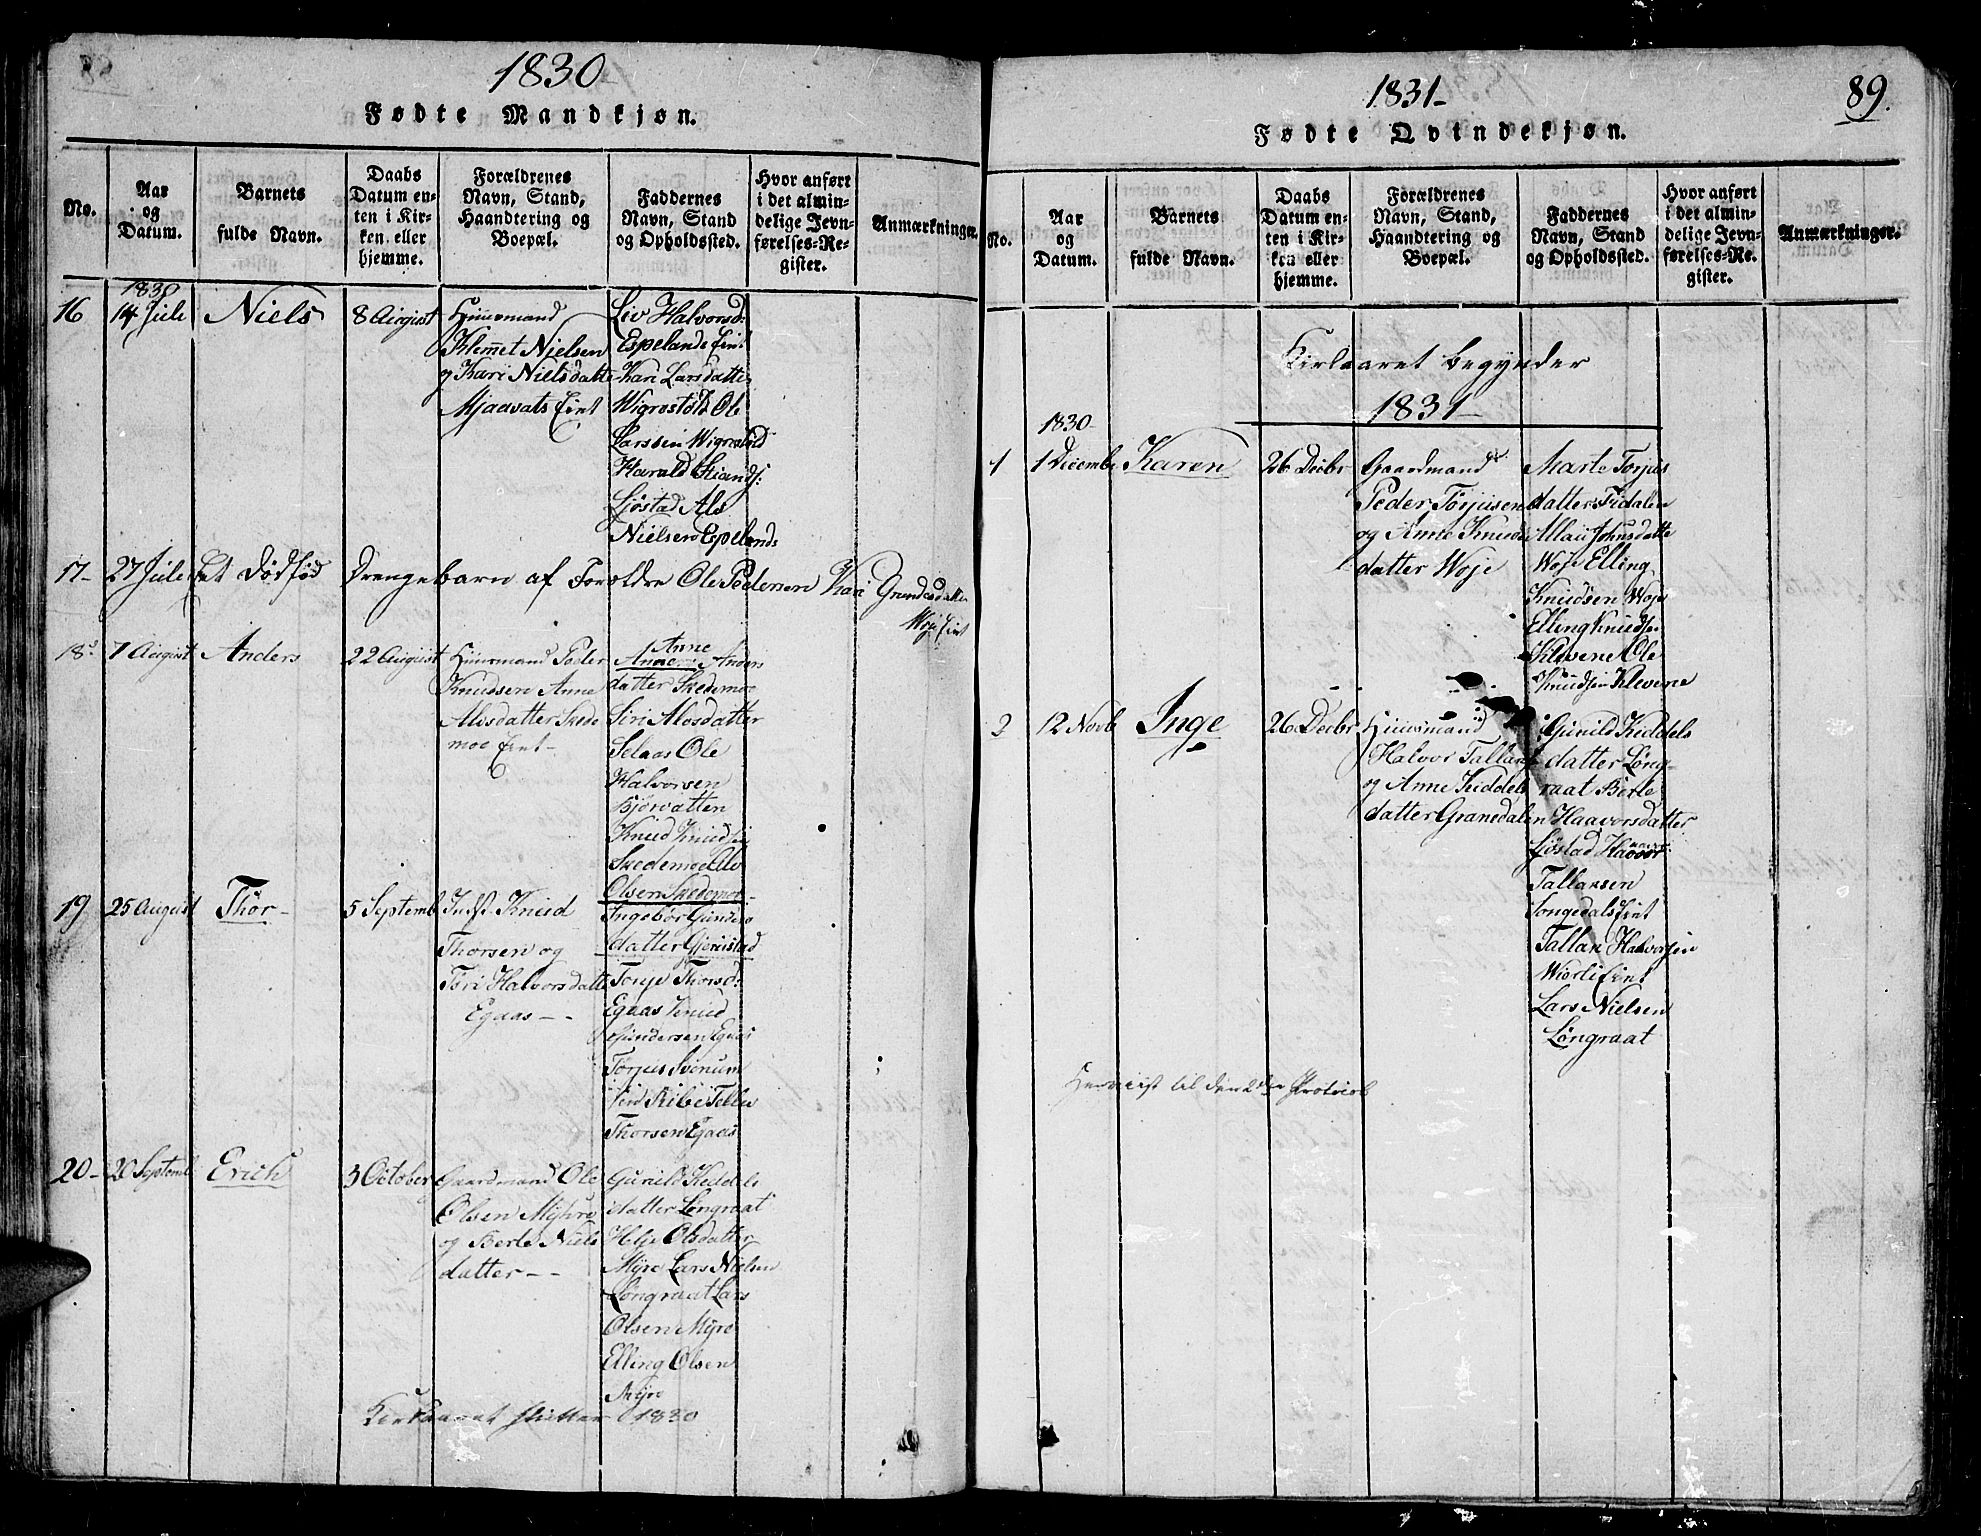 1830
Fødte Mandkjøn.
No.
Aar
og
Datum.
Barnets
fulde Navn.
Daabs
Datum en-
ten i Kir-
ken eller
hjemme.
Forældrenes
Navn, Stand,
Haandtering og
Boepæl.
Faddernes
Navn, Stand
og Opholdssted.
Hvor anført
i det almin-
delige Jevn-
førelses-Re-
gister.
Anmærkninger.
1830
16 14 Juli Niels 8 August Huusmand
Klemmet Nielsen
og Kari Nielsdatter
Mjaavats Eint
Liv Halvorsd:
Espelands Eint
Kari Larsdatter
Wigrestøld Ole
Larssen Wigrestøld
Harald
Ljøstad Als
Nielsen Espelands
17- 27 Juli et Dødfød Drengebarn af Foreldre Ole Pedersen Kari
Woje Eint
18 7 August Anders 22 August Huusmand Peder
Knudsen Anne
Alosdatter Skede
moe Eint-
Anne
Anne Anders
datter Skedemoe
Siri Alosdatter
Selaas Ole
Halvorsen
Bjørvatten
Knud Knudsen
Skedemoe Alo
Olsen Skedemoe-
19 25 August Thor- 5 Septemb Indst. Knud
Thorsen og
Tori Halvorsdatter
Egaas - -
Ingebor Gunders
datter Gjeruistad
Torje Thorsd:
Egaas Knud
Gundersen Egaas
Torjus
Tellev
Thorsen Egaas
20- 20 Septemb Erich 3 October Gaardmand Ole
Olsen Myhre
og Berte Niels
datter - -
Gunild Keddels
datter Løngraat
Helje Olsdatter
Myre Lars Nielsen
Løngraat Lars
Olsen Myre
Elling Olsen
Myre
Kirkeaaret slutter 1830
1831-
89.
Fødte Qvindekjøn.
No.
Aar
og
Datum.
Barnets
fulde Navn.
Daabs
Datum en-
ten i Kir-
ken eller
hjemme.
Forældrenes
Navn, Stand,
Haandtering og
Boepæl.
Faddernes
Navn, Stand
og Opholdssted.
Hvor anført
i det almin-
delige Jevn-
førelses-Re-
gister.
Anmærkninger.
Kirkaaret begynder
1831-
1830-
1 1 Decemb Karen 26 Decbr Gaardmand
Peder Torjusen
og Anne Knuds
datter Woje
Marte Torjus
datter Fidalen
Johnsdatte
Woje Elling
Knudsen Woje
Elling Knudsen
Klevene Ole
Knudsen Klevene
2 12 Novb Inge 26 Decbr Huusmand
Halvor Tallansen
og Anne Kiddels
datter Granedalen
Gunild Kiddels
datter Løng-
raat Berte
Haavorsdatter
Ljøstad Haavor
Tallansen
Songedals Eint
Tallan Halvorsen
Wiorli Eint
Lars Nielsen
Løngraat
Henviist til den 2den Protocol